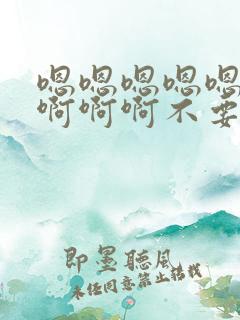 嗯嗯嗯嗯嗯
啊啊啊不要
即墨聽風
未经同意禁止转载